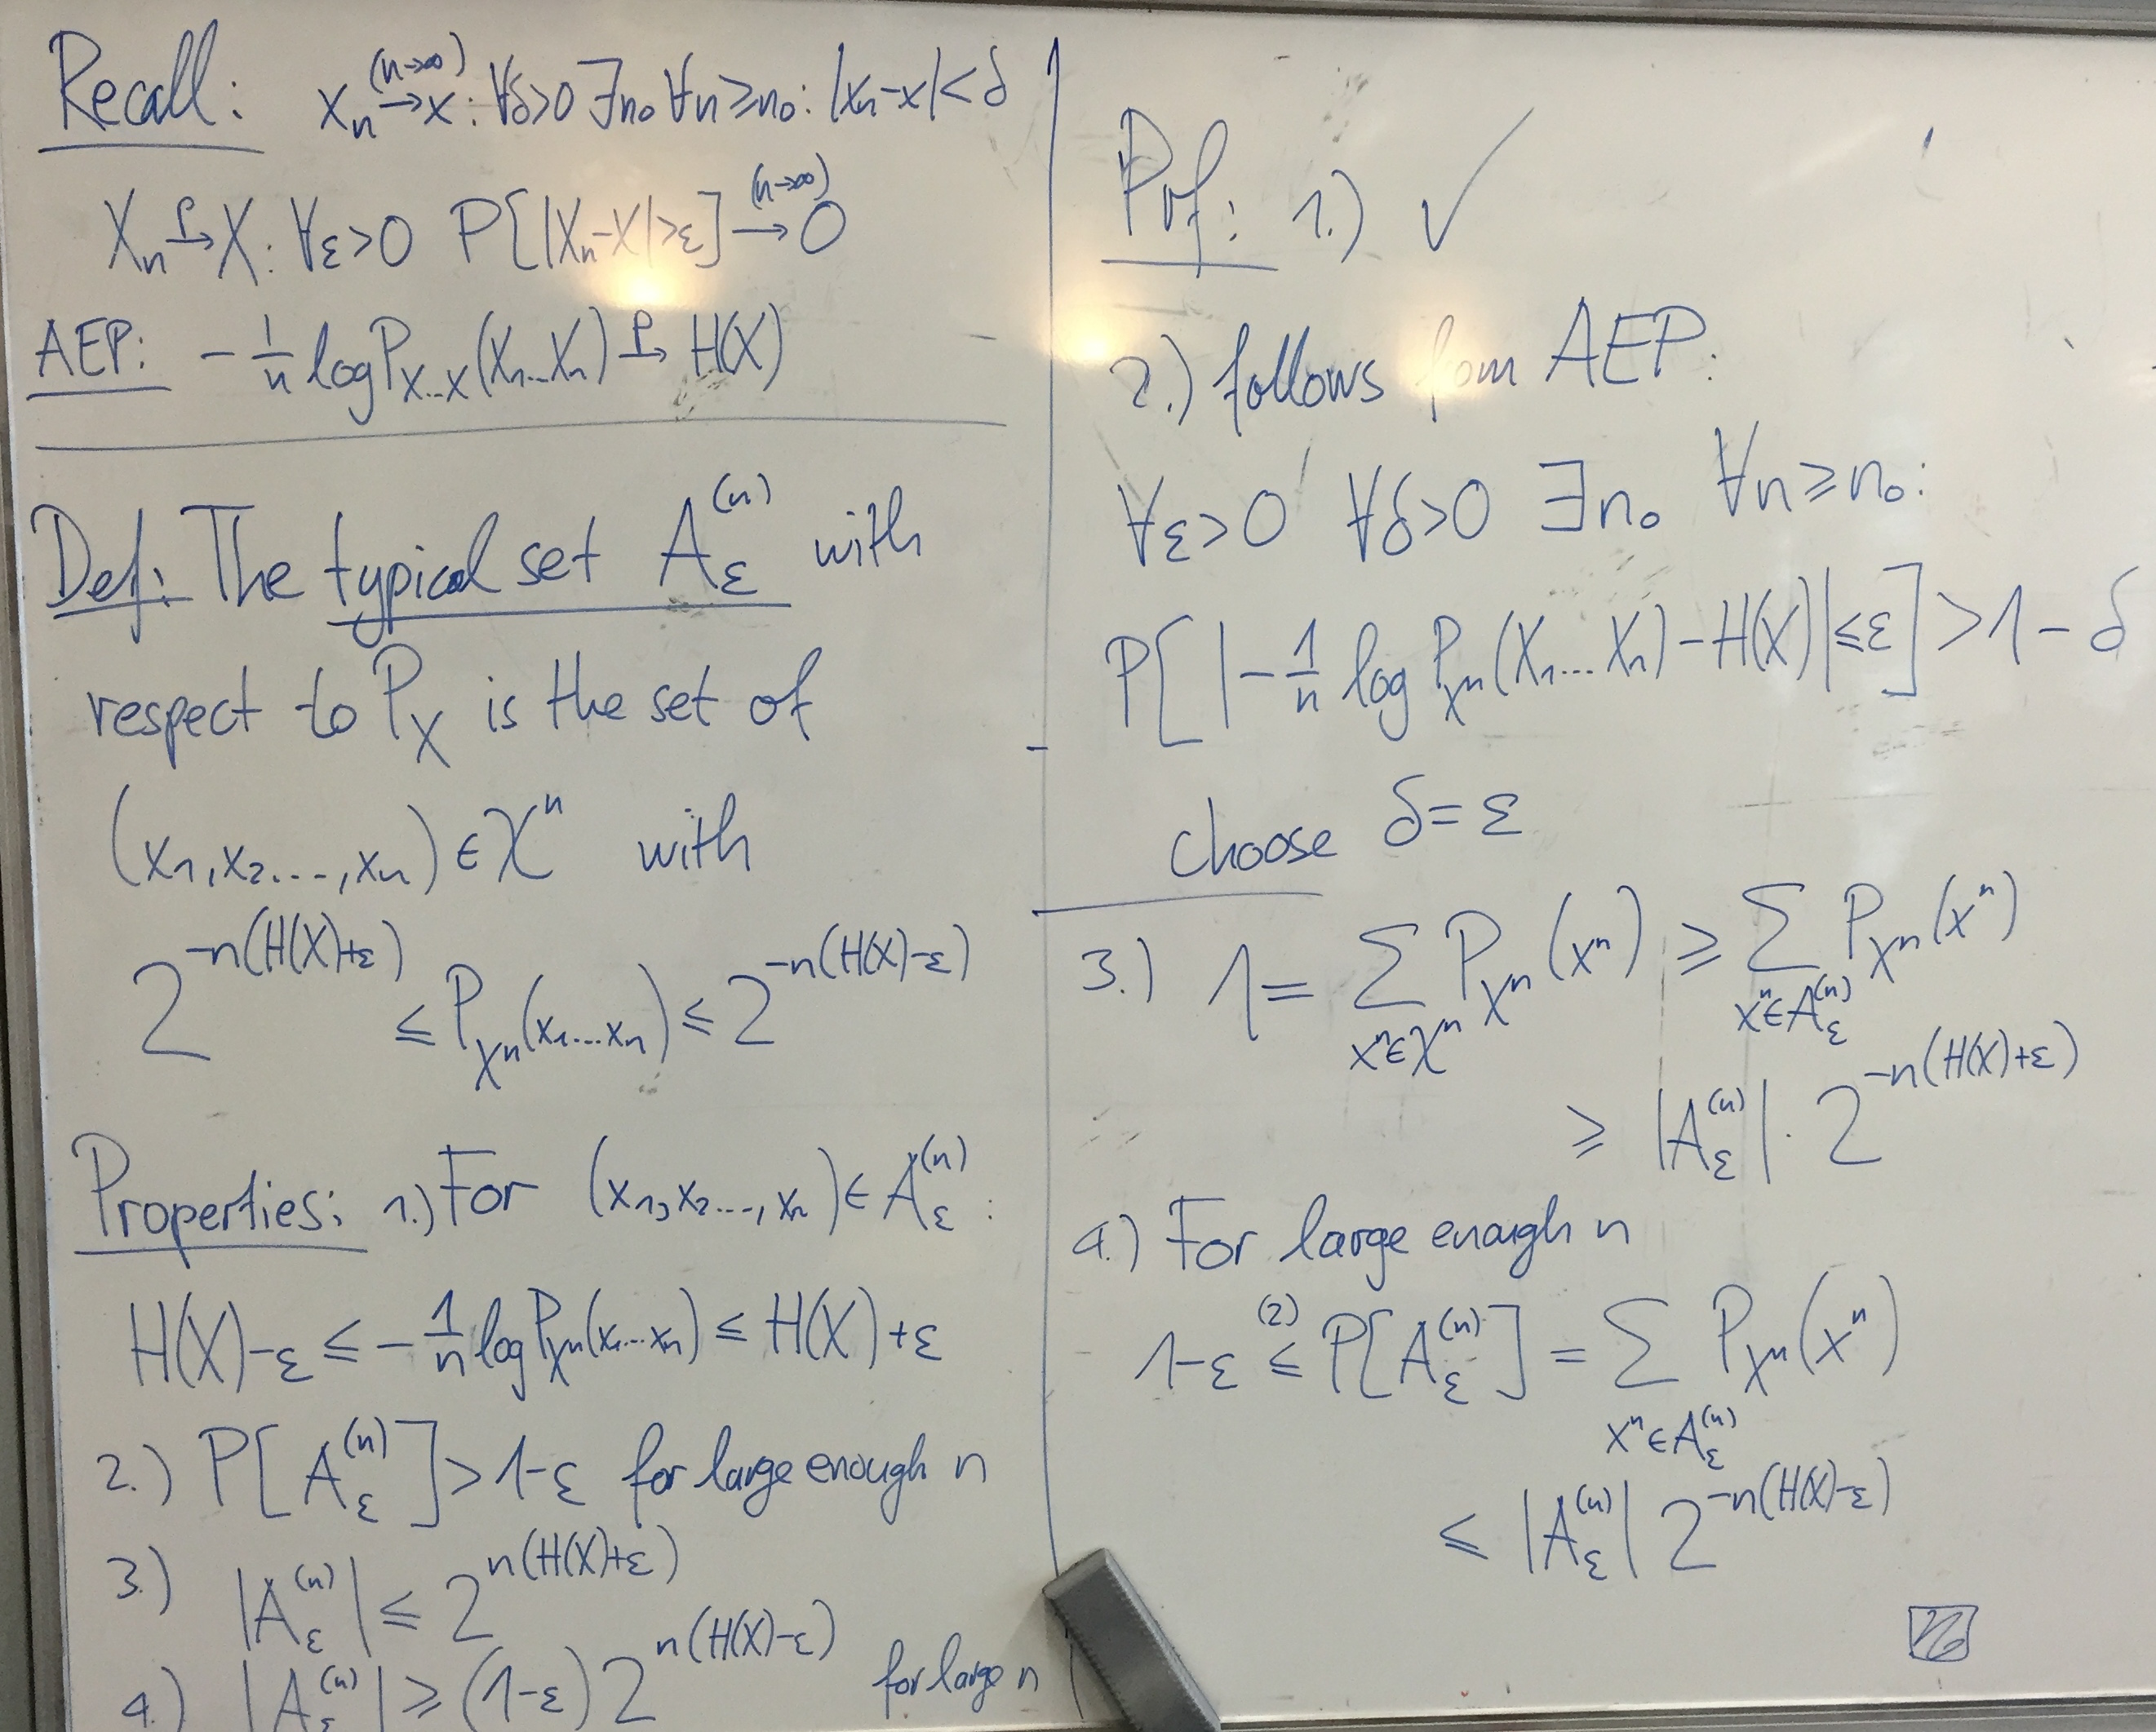 Recall: xₙ →^(n→∞) x : ∀δ>0 ∃n₀ ∀n≥n₀: |xₙ-x|<δ
Xₙ →^P X: ∀ε>0 P[|Xₙ-X|>ε] →^(n→∞) 0
AEP: -1/n log P_{X...X}(X₁...Xₙ) →^P H(X)
Def: The typical set A_ε^(n) with
respect to P_X is the set of
(x₁,x₂...,xₙ) ∈ 𝒳ⁿ with
2^{-n(H(X)+ε)} ≤ P_{Xⁿ}(x₁...xₙ) ≤ 2^{-n(H(X)-ε)}
Properties: 1.) For (x₁,x₂...,xₙ) ∈ A_ε^(n) :
H(X)-ε ≤ -1/n log P_{Xⁿ}(x₁...xₙ) ≤ H(X)+ε
2.) P[A_ε^(n)] > 1-ε for large enough n
3.) |A_ε^(n)| ≤ 2^{n(H(X)+ε)}
4.) |A_ε^(n)| ≥ (1-ε) 2^{n(H(X)-ε)} for large n
Prf: 1.) ✓
2.) follows from AEP:
∀ε>0 ∀δ>0 ∃n₀ ∀n≥n₀:
P[|-1/n log P_{Xⁿ}(X₁...Xₙ) - H(X)| ≤ ε] > 1-δ
choose δ=ε
3.) 1 = ∑_{xⁿ∈𝒳ⁿ} P_{Xⁿ}(xⁿ) ≥ ∑_{xⁿ∈A_ε^(n)} P_{Xⁿ}(xⁿ)
≥ |A_ε^(n)| · 2^{-n(H(X)+ε)}
4.) For large enough n
1-ε ≤^(2) P[A_ε^(n)] = ∑_{xⁿ∈A_ε^(n)} P_{Xⁿ}(xⁿ)
≤ |A_ε^(n)| 2^{-n(H(X)-ε)}